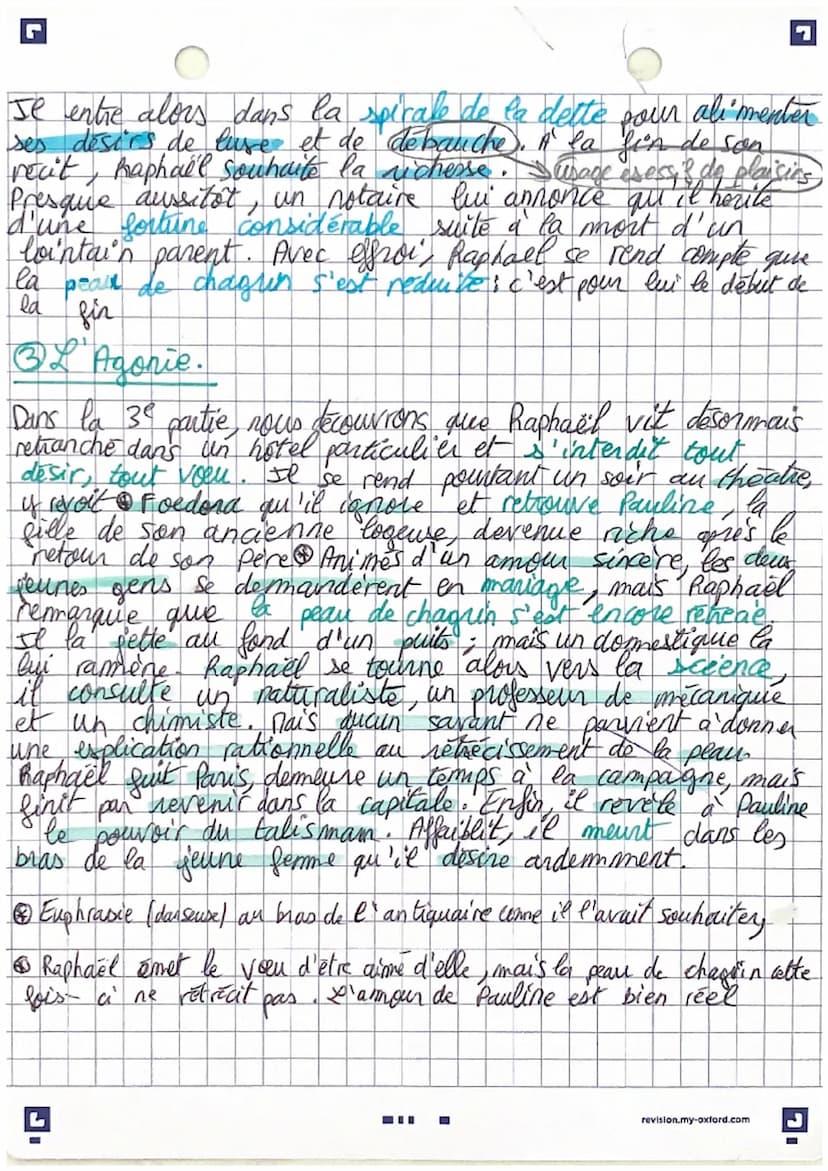 Il entre alors dans la spirale de la dette pour alimenter
ses désirs de luxe et de débauche. A la fin de son
récit, Raphaël souhaite la richesse. usage exessif de plaisirs
Presque aussitôt, un notaire lui annonce qu'il hérite
d'une fortune considérable suite à la mort d'un
lointain parent. Avec effroi, Raphaël se rend compte que
la peau de chagrin s'est réduite : c'est pour lui le début de
la fin
③ L'Agonie.
Dans la 3e partie, nous découvrons que Raphaël vit désormais
retranché dans un hôtel particulier et s'interdit tout
désir, tout vœu. Il se rend pourtant un soir au théâtre,
y revoit Foedora qu'il ignore et retrouve Pauline, la
fille de son ancienne logeuse, devenue riche après le
retour de son père Animés d'un amour sincère, les deux
jeunes gens se demandèrent en mariage, mais Raphaël
remarque que la peau de chagrin s'est encore rétréci.
Il la jette au fond d'un puits ; mais un domestique la
lui ramène. Raphaël se tourne alors vers la science,
il consulte un naturaliste, un professeur de mécanique
et un chimiste. Mais aucun savant ne parvient à donner
une explication rationnelle au rétrécissement de la peau
Raphaël fuit Paris, demeure un temps à la campagne, mais
finit par revenir dans la capitale. Enfin, il révèle à Pauline
le pouvoir du talisman. Affaiblit, il meurt dans les
bras de la jeune femme qu'il désire ardemment.
Euphrasie (danseuse) au bras de l'antiquaire comme il l'avait souhaiter
Raphaël émet le vœu d'être aimé d'elle, mais la peau de chagrin cette
fois-ci ne rétrécit pas. L'amour de Pauline est bien réel
revision.my-oxford.com